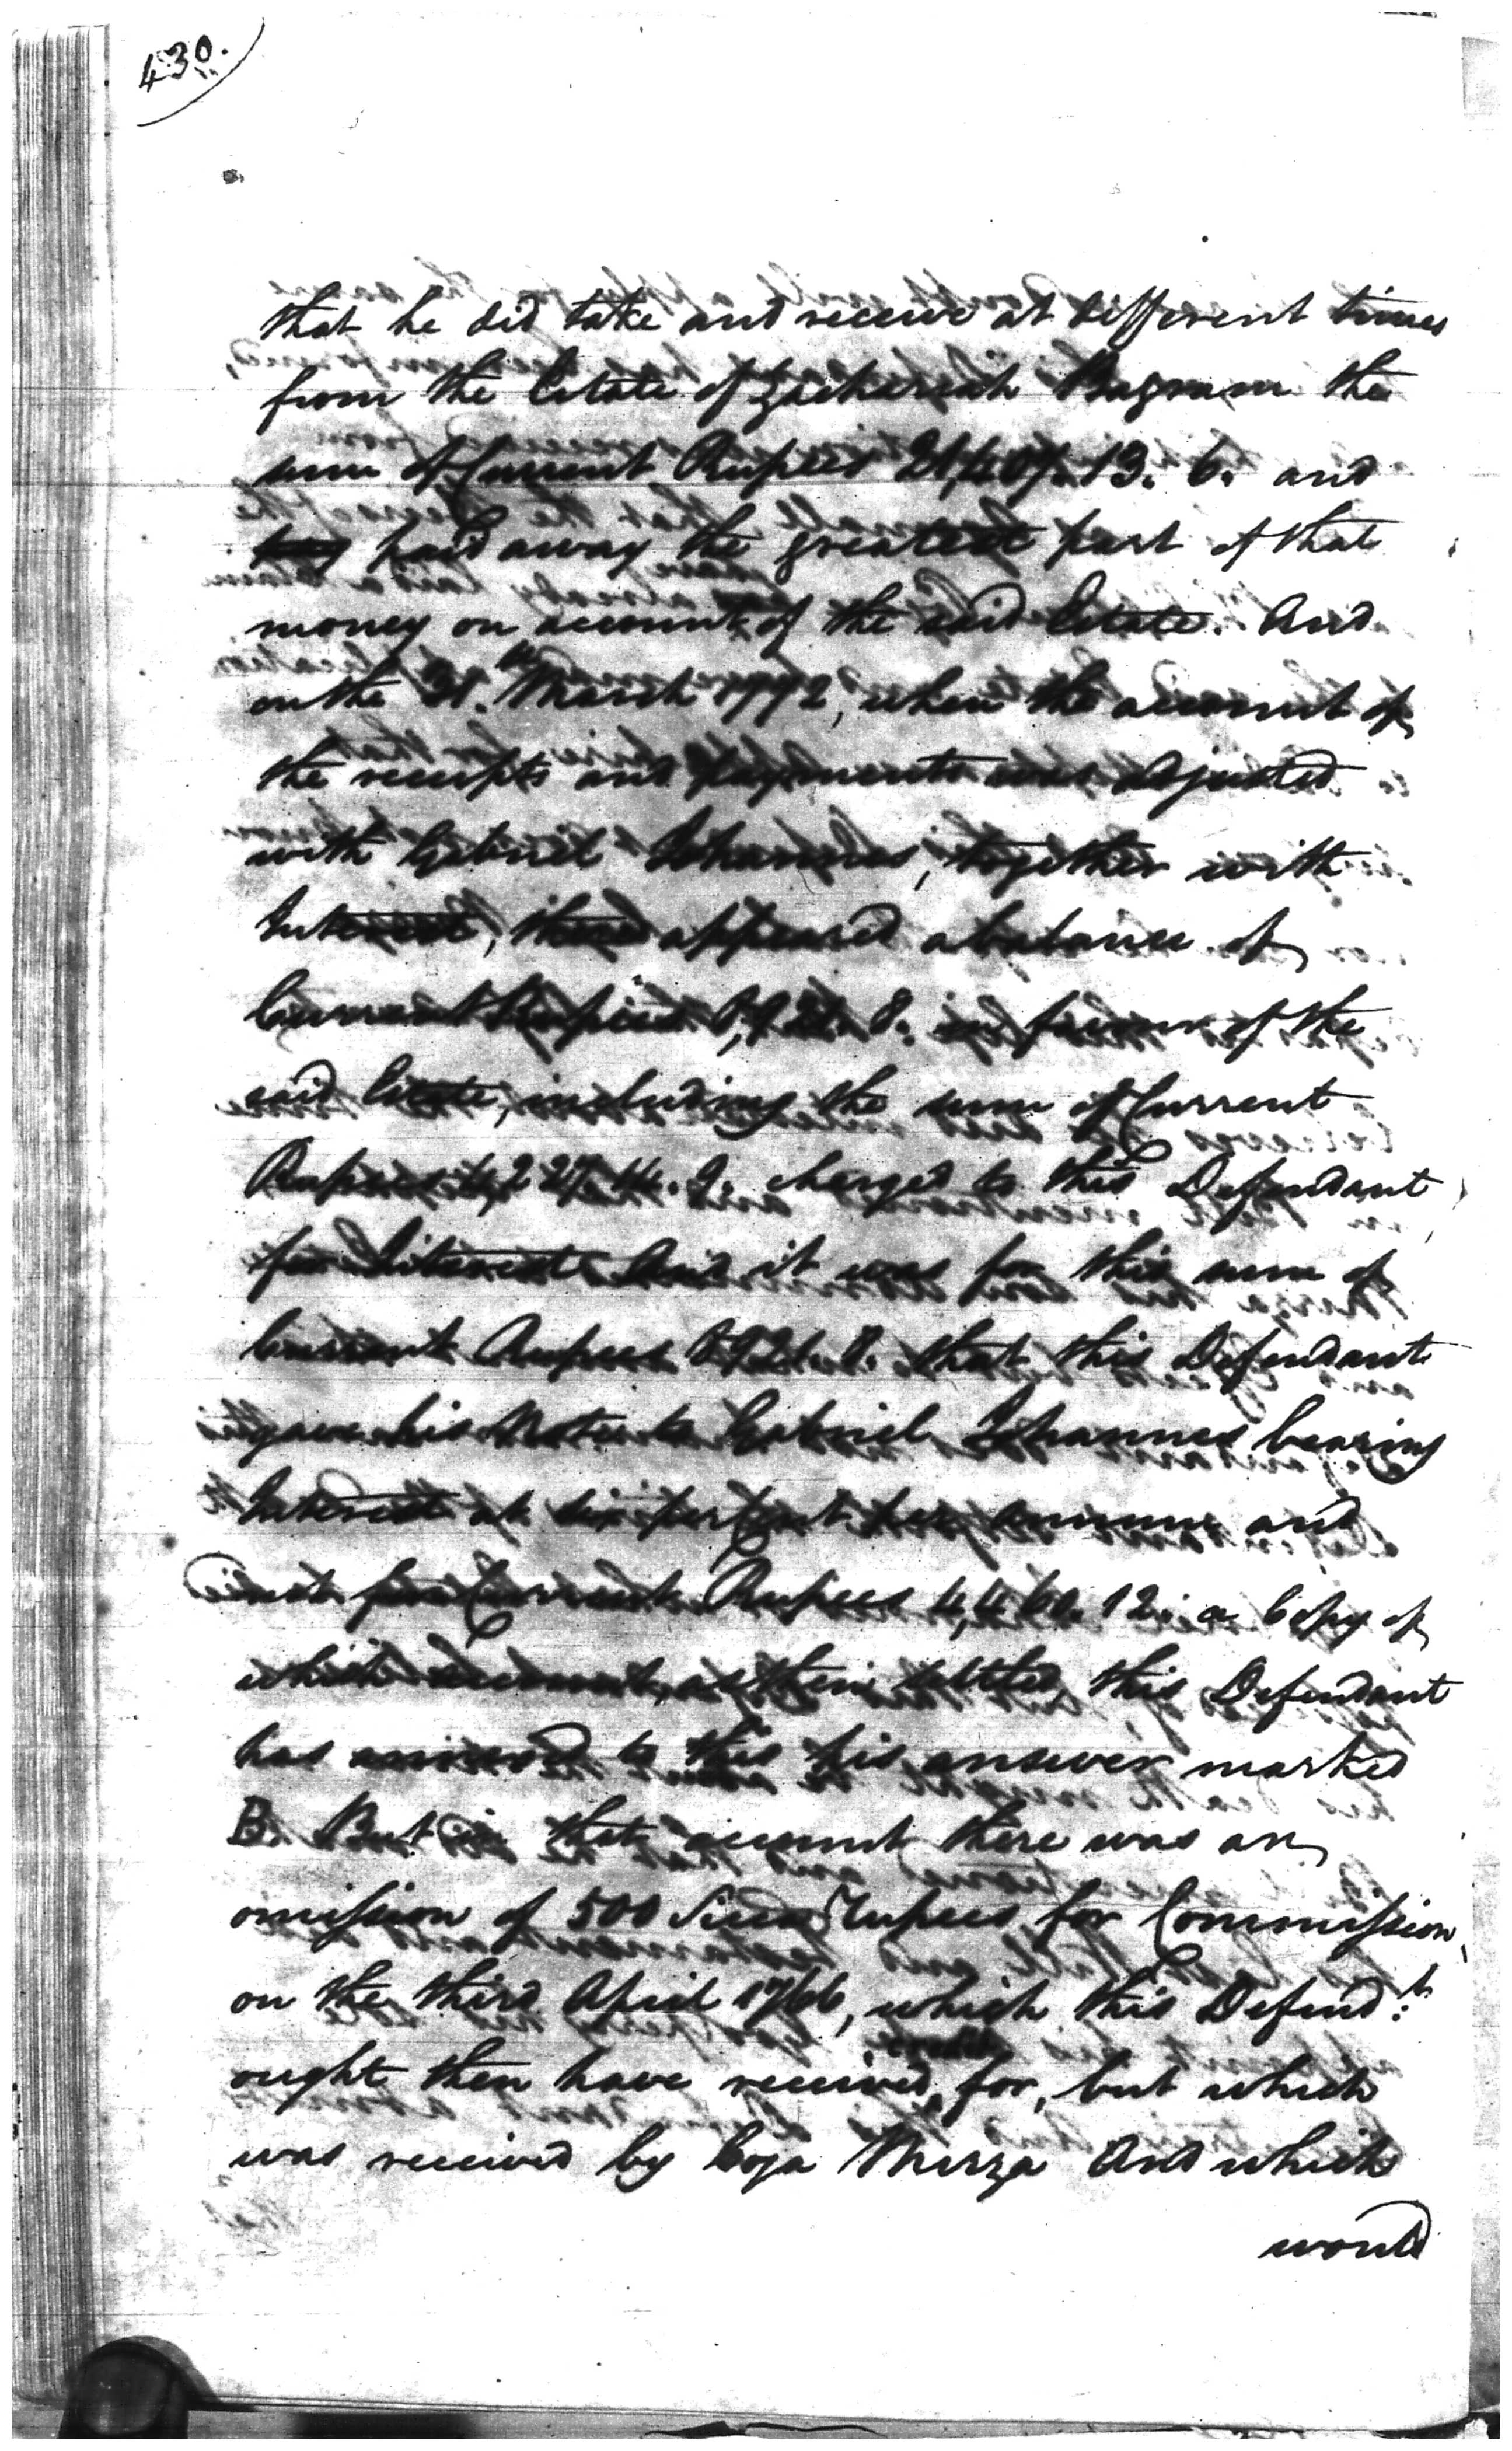 430.
that he did take and receive at different times
from the Estate of Zachariah Bagram the
sum of Current Rupees 13. 6. and
paid away the greatest part of that
money on account of the said Estate. And
on the 31. March 1772, when the account of
the receipts and payments was adjusted
with Gabriel Johannes, together with
Interest, there appeared a balance of
Current Rupees 8. in favour of the
said Estate, including the sum of Current
Rupees charged to this Defendant
for Interest And it was for this sum of
Current Rupees 8. that this Defendant
gave his Note to Gabriel Johannes bearing
Interest at six per Cent per annum and
not for Current Rupees 12. a Copy of
which account, as then settled, this Defendant
has annexed to this his answer marked
B. But in that account there was an
omission of 500 Sicca Rupees for Commission
on the third April 1766, which this Defend:t
ought then have received for, but which
was received by Coja Mirza And which
would